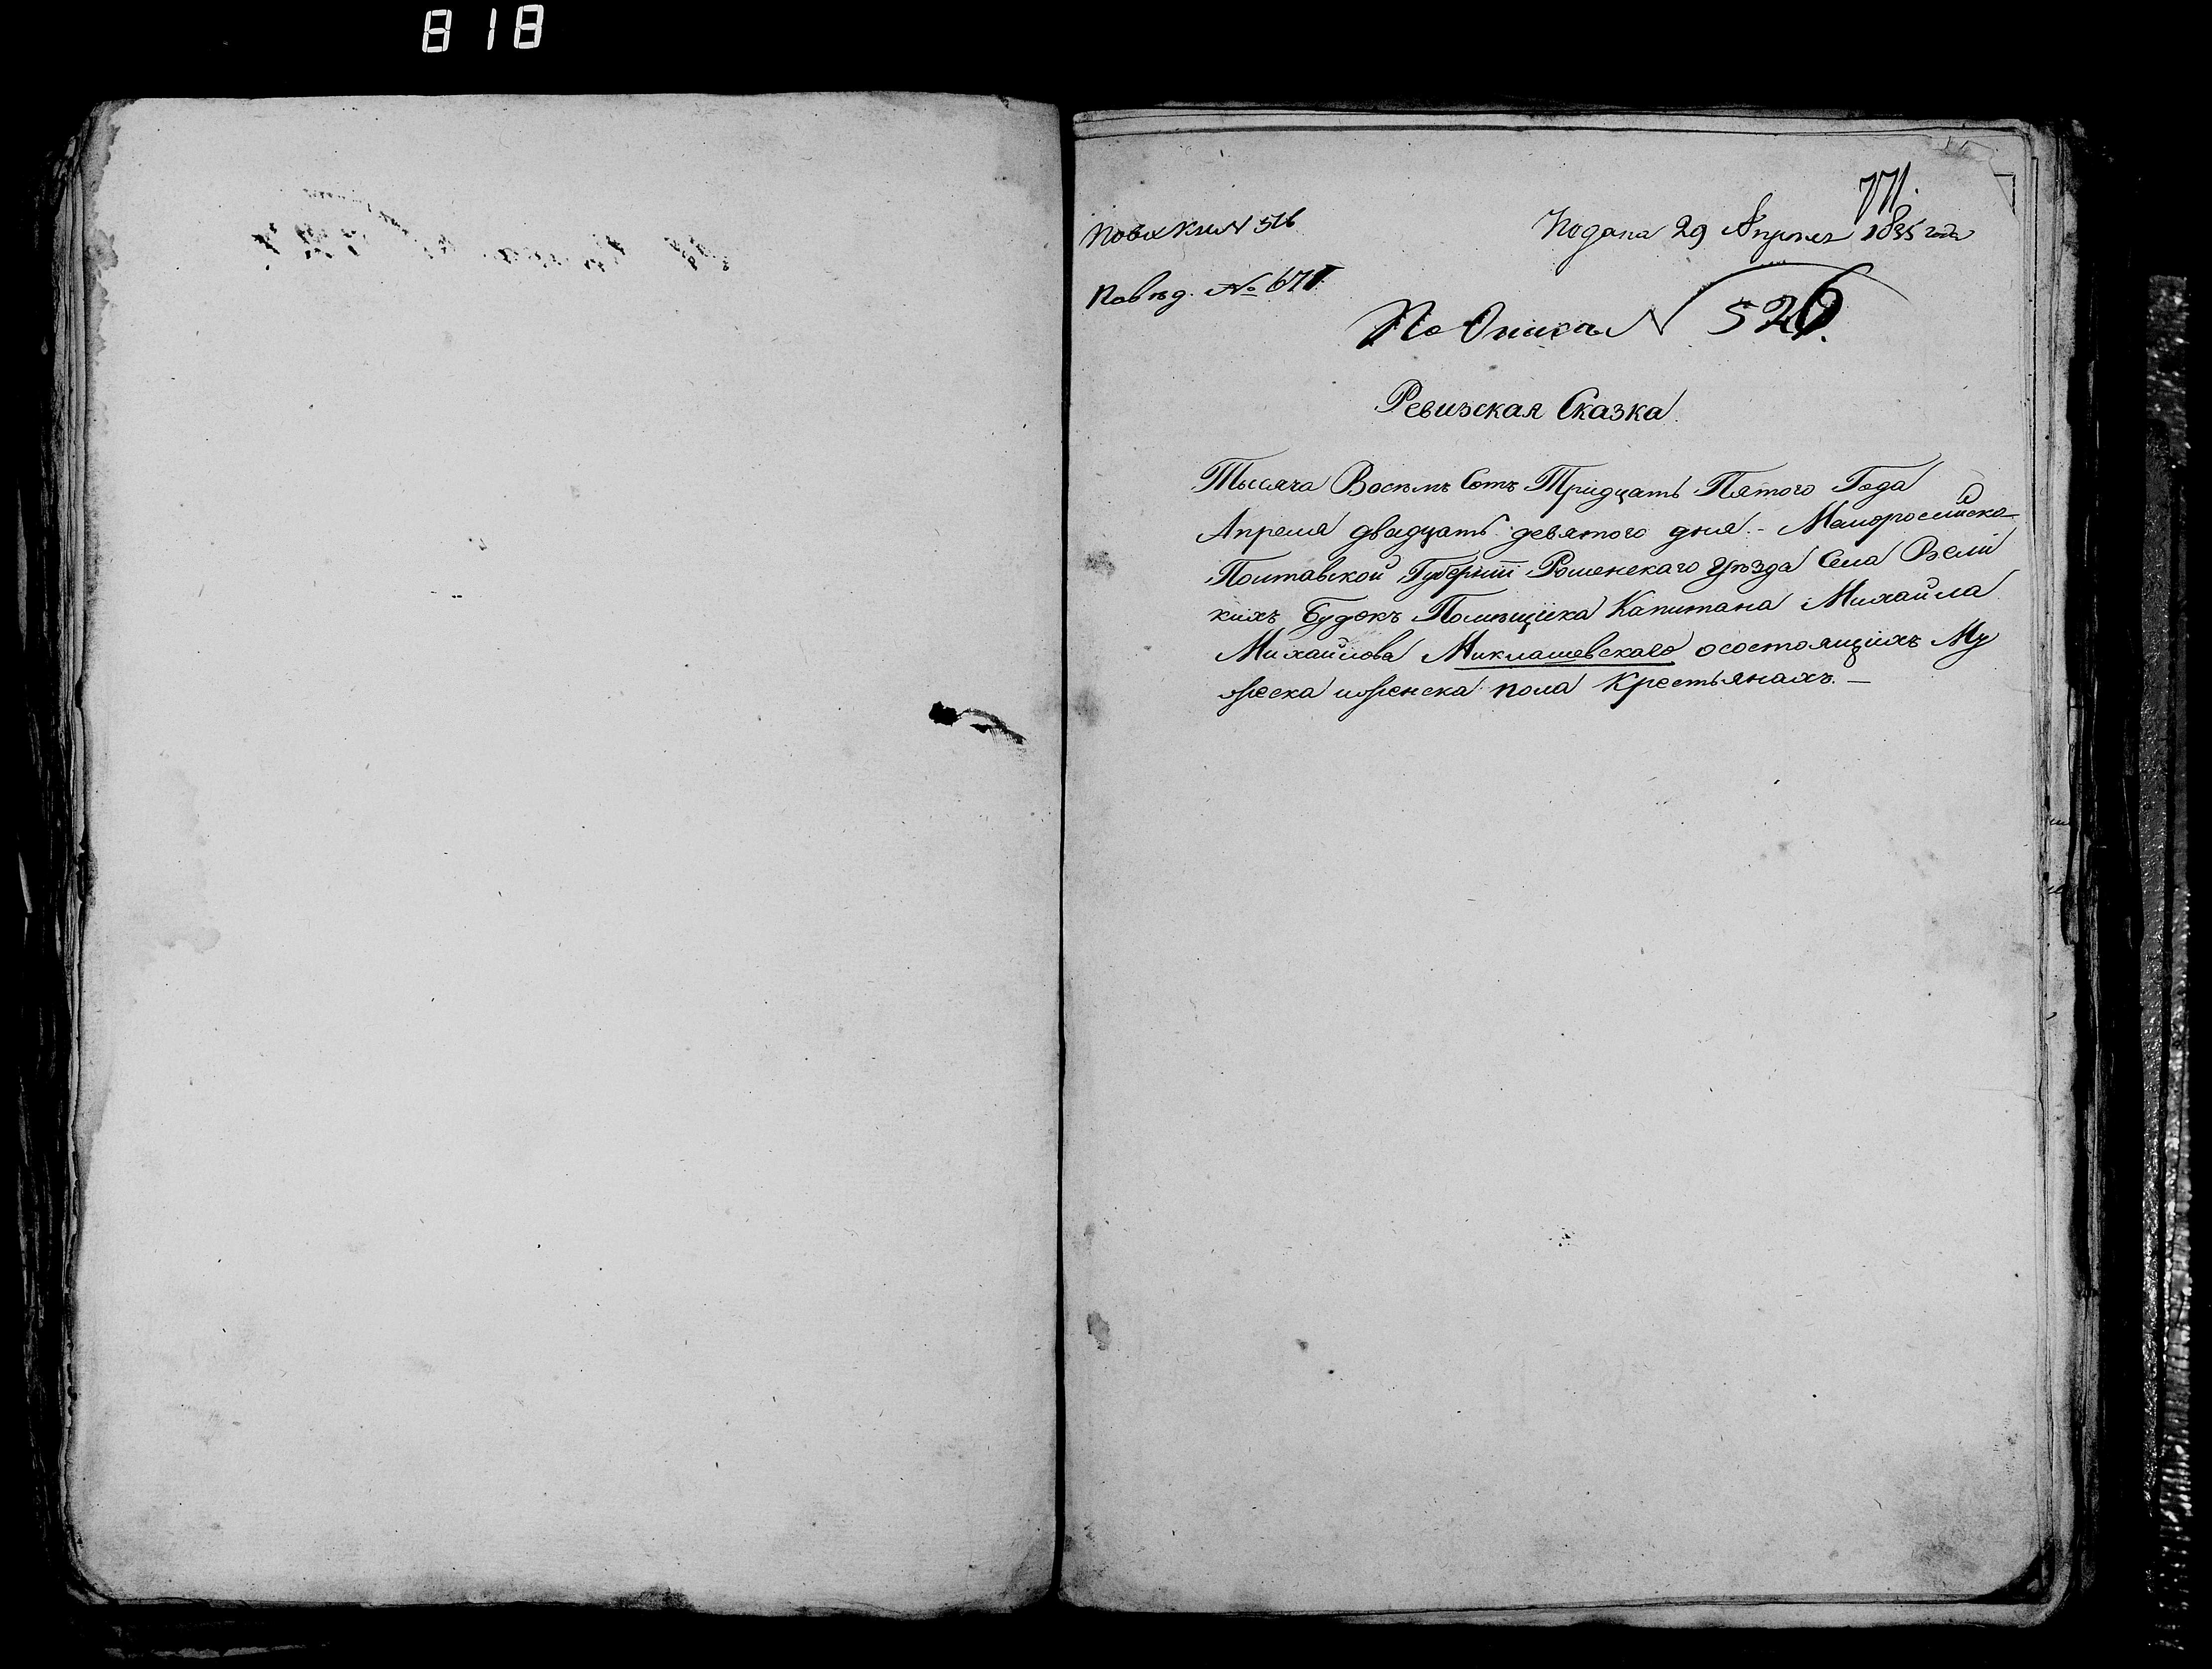 818
771.
Подана 29 Апреля 1835 года
№ 516
По вѣд. № 671
По Описи N 526.
Ревизская Сказка
Тысяча Восемь Сотъ Тридцать Пятого Года
Апреля двадцать девятого дня - Малоросийско-й
Полтавской Губерніи Роменскаго уѣзда Села Вели
кихъ Будокъ Помѣщика Капитана Михайла
Михайлова Миклашевскаго осостоящихъ Му
жеска иженска пола Крестьянахъ. —